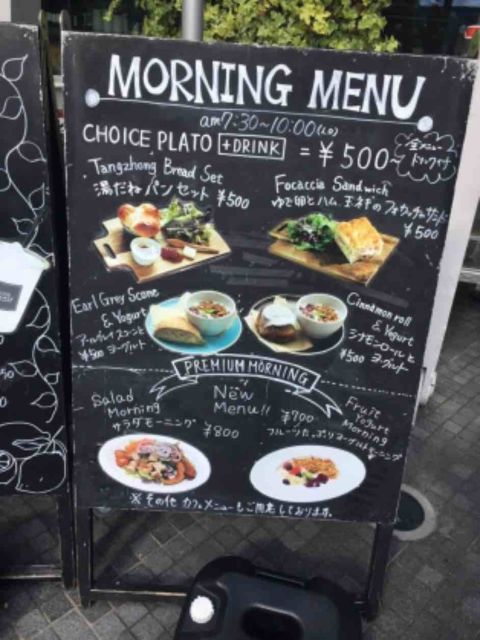 MORNING MENU
am7:30~10:00(L.O)
CHOICE PLATO +DRINK = ¥500~
全メニュー
ドリンク付
Tangzhong Bread Set
湯だねパンセット ¥500
Focaccia Sandwich
ゆで卵とハム、玉ネギのフォカッチャサンド
¥500
Earl Grey Scone
& Yogurt
アールグレイスコーンと
¥500 ヨーグルト
Cinnamon roll
& Yogurt
シナモンロールと
¥500 ヨーグルト
PREMIUM MORNING
New
Menu!!
Salad
Morning
サラダモーニング ¥800
Fruit
Yogurt
Morning
¥700
フルーツたっぷりヨーグルトモーニング
※その他 カフェメニューもご用意しております。